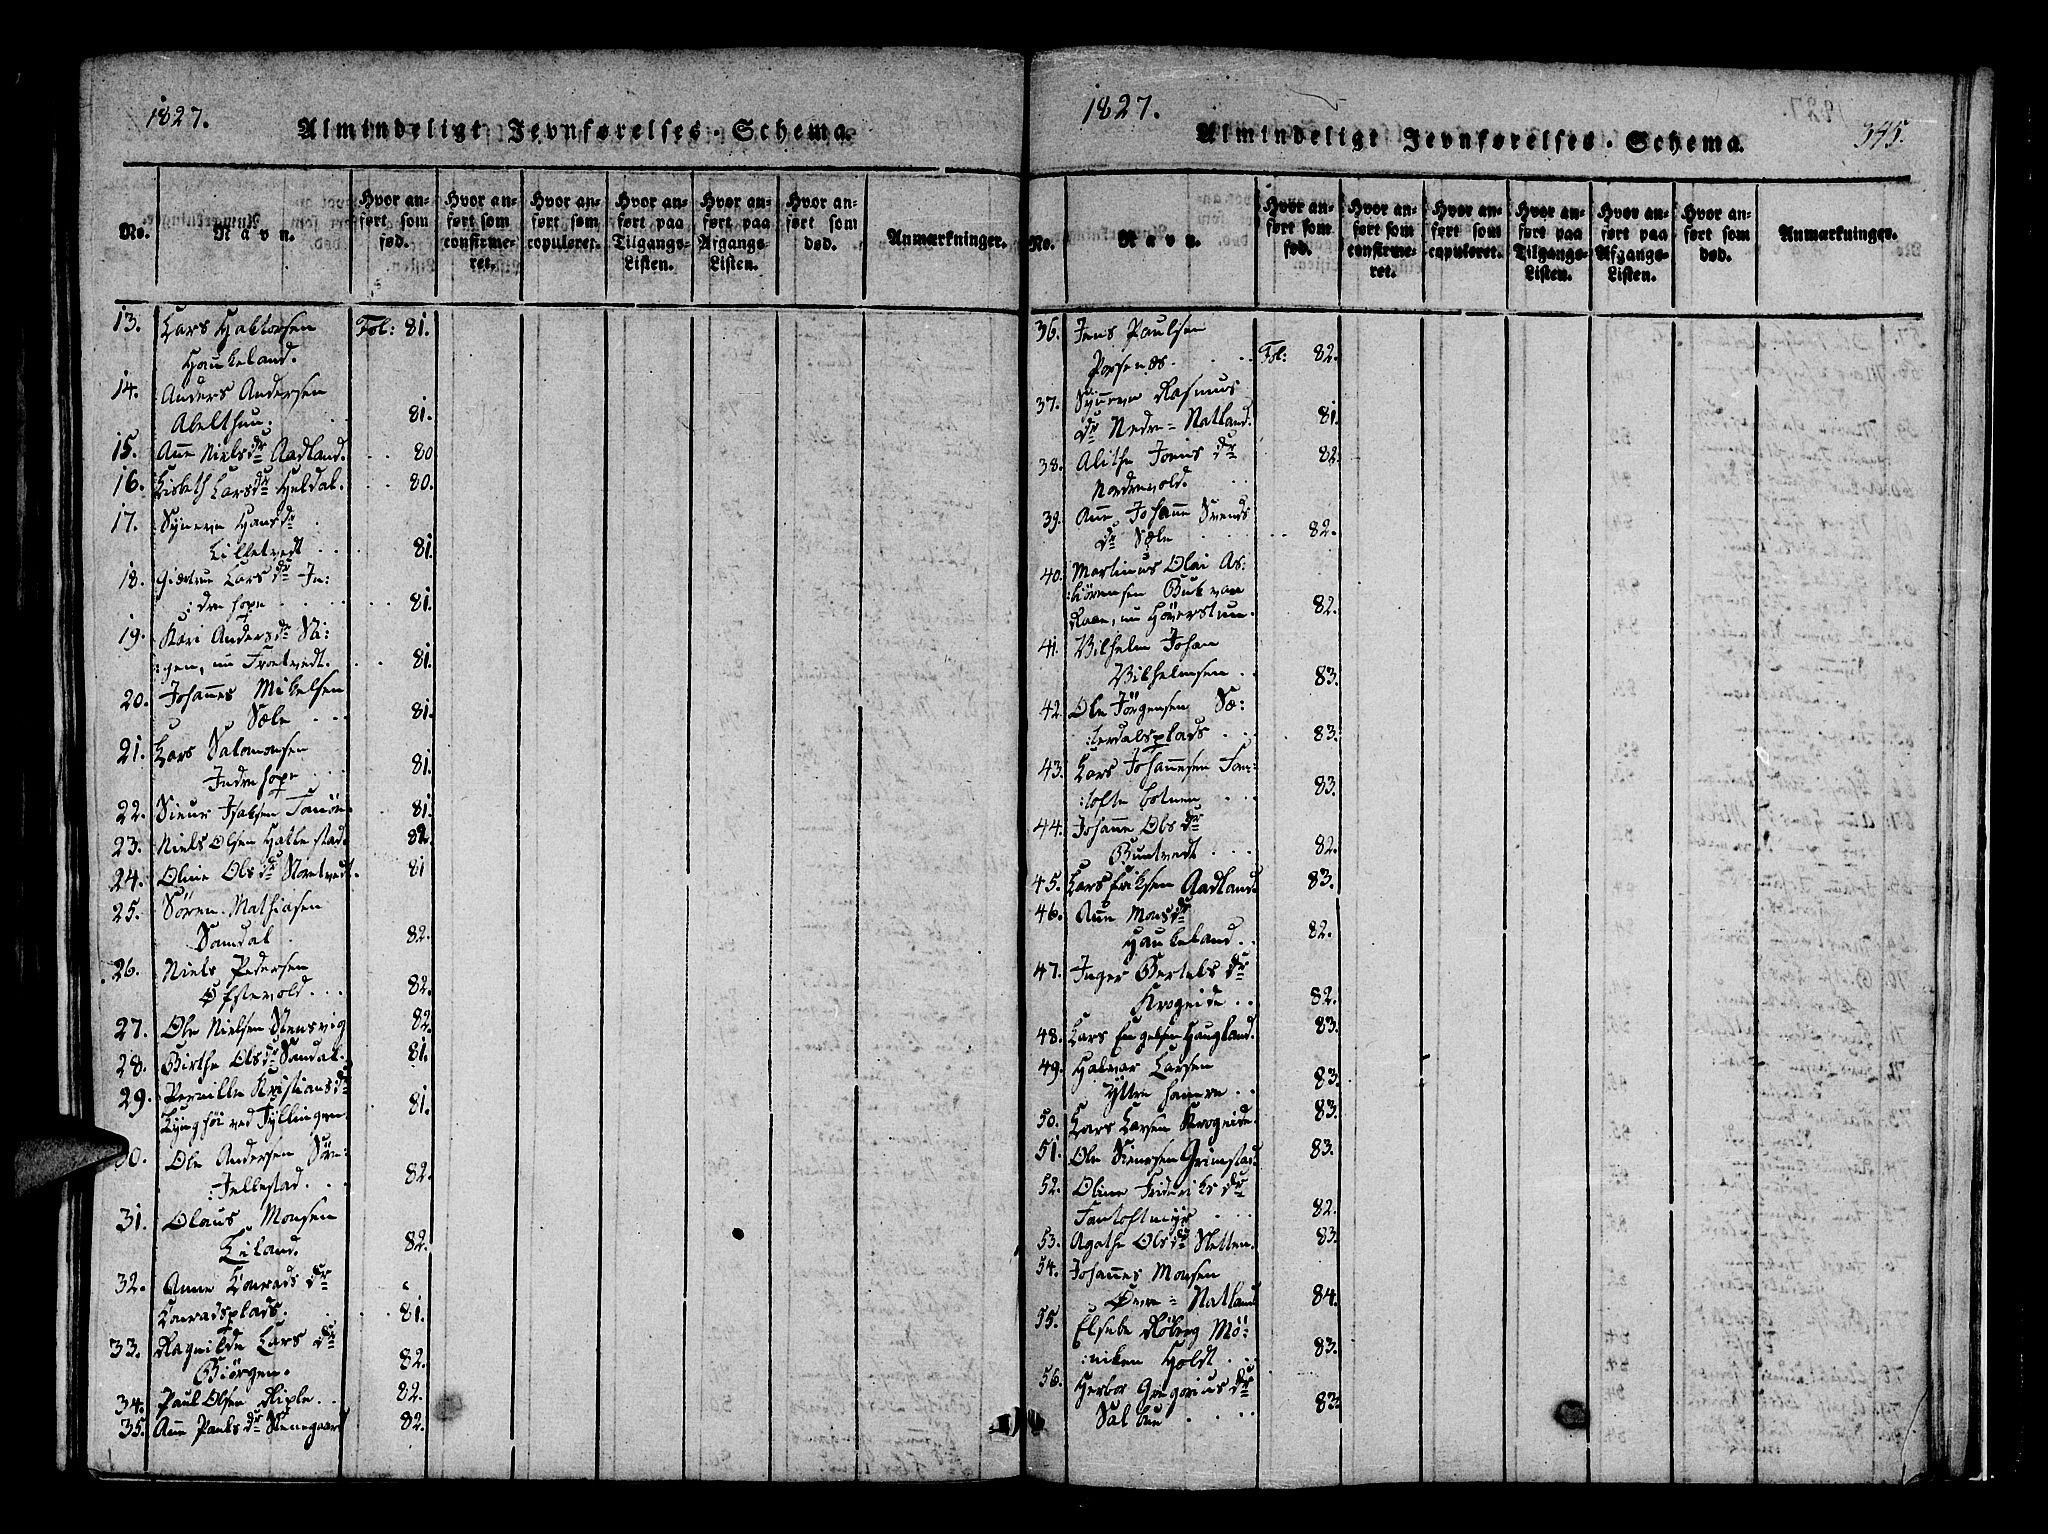 1827.
Almindeligt Jevnførelses-Schema.
No.
Navn.
Hvor an-
ført som
fød.
Hvor an-
ført som
confirme-
ret.
Hvor an-
ført som
copuleret.
Hvor an-
ført paa
Tilgangs-
Listen.
Hvor an-
ført paa
Afgangs-
Listen.
Hvor an-
ført som
død.
Anmærkninger.
13. Lars Haktorsen Fol: 81.
Haukeland.
14. Anders Andersen
Abelthun. 81.
15. Ane Nielsdr Aadland. 80
16. Lisbeth Larsdr Huldal. 80.
17. Synneve Hansdr
Lilletvedt 81.
18. Giertrun Larsdr In:
:dre hope 81.
19. Kari Andersdr Sti:
:gen, nu Troetvedt. 81.
20. Johannes Mikelsen
Sæle 81.
21. Lars Salomonsen
Indre hope 81.
22. Sieur Isaksen 81.
23. Niels Olsen Hatlestad. 82.
24. Oline Olsdr 81
25. Sören Mathiasen
Sandal. 82.
26. Niels Pedersen
Øfstevold. 82.
27. Ole Nielsen Stensvig 82.
28. Birthe Olsdr Sandal. 81.
29. Pernille Kristiansdr
Lynghöi ved Fyllingen 81.
30. Ole Andersen Sör:
:Fellestad. 82.
31. Olaus Monsen
Liland. 82.
32. Anne Konradsdr
Konradsplads. 81.
33. Ragnilde Larsdr
Biörgen. 82.
34. Paul Olsen Riple. 82.
35. Ane Paulsdr Stenegaard 82.
1827.
Almindeligt Jevnførelses-Schema.
345.
No.
Navn.
Hvor an-
ført som
fød.
Hvor an-
ført som
confirme-
ret.
Hvor an-
ført som
copuleret.
Hvor an-
ført paa
Tilgangs-
Listen.
Hvor an-
ført paa
Afgangs-
Listen.
Hvor an-
ført som
død.
Anmærkninger.
36. Jens Paulsen
Porsenæs. Fol: 82.
37. Synneve Rasmus
dr Nedre-Natland. 81.
38. Alithe Joensdr 82.
Nordrevold.
39. Ane Johanne Svends
dr Sæle 82.
40. Martinus Olai As:
:biörensen Buk van
Raae, nu Höverstuen. 82.
41. Vilhelm Johan
Vilhelmsen 83.
42. Ole Jörgensen Sæ:
:terdalsplads 83.
43. Lars Johannesen Fan:
:tofte botnen 83.
44. Johanne Olsdr
Buntvedt 82.
45. Lars Eriksen Aadland. 83.
46. Ane Monsdr
Haukeland. 82.
47. Inger Bertelsdr
Krogeide 82.
48. Lars Engelsen Haugland. 83.
49. Halvar Larsen
Ytre hamre 83.
50. Lars Larsen Krogeide. 83.
51. Ole Sieursen Grimstad. 83.
52. Oline Frideriksdr
Fantoftmyr 82.
53. Agathe Olsdr Sletten. 83.
54. Johannes Monsen
Øvre-Natland 84.
55. Elsebe Röberg Mö:
:niken Holdt 83.
56. Herbor Gregoriusdr
Sælbu 83.